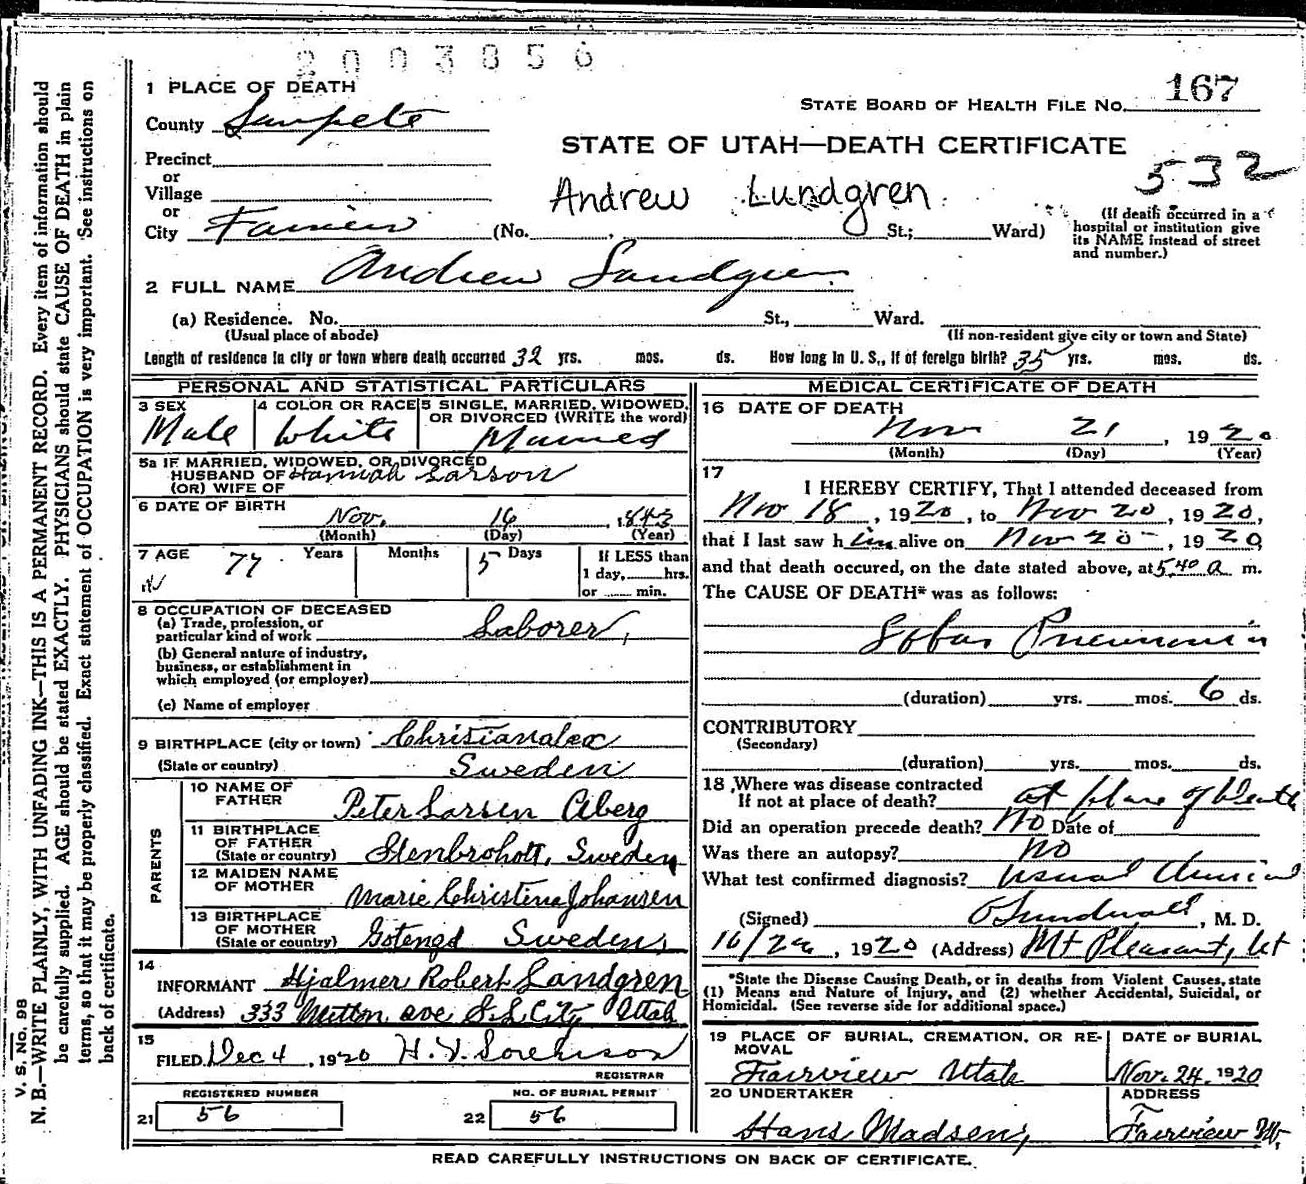 2003856
1 PLACE OF DEATH
STATE BOARD OF HEALTH FILE NO. 167
County Sanpete
STATE OF UTAH—DEATH CERTIFICATE
532
Precinct
or
Village
Andrew Lundgren
or
City Fairview (No. , St.; Ward)
(If death occurred in a hospital or institution give its NAME instead of street and number.)
2 FULL NAME Andrew Landgren
(a) Residence. No. St., Ward.
(Usual place of abode) (If non-resident give city or town and State)
Length of residence in city or town where death occurred 32 yrs. mos. ds. How long in U. S., if of foreign birth? 35 yrs. mos. ds.
PERSONAL AND STATISTICAL PARTICULARS
3 SEX Male
4 COLOR OR RACE White
5 SINGLE, MARRIED, WIDOWED, OR DIVORCED (WRITE the word) Married
5a IF MARRIED, WIDOWED, OR DIVORCED
HUSBAND OF Hannah Larson
(OR) WIFE OF
6 DATE OF BIRTH
Nov. 16, 1843
(Month) (Day) (Year)
7 AGE 77 Years Months 5 Days
If LESS than
1 day, hrs.
or min.
8 OCCUPATION OF DECEASED
(a) Trade, profession, or
particular kind of work Laborer,
(b) General nature of industry,
business, or establishment in
which employed (or employer)
(c) Name of employer
9 BIRTHPLACE (city or town)
(State or country) Sweden
PARENTS
10 NAME OF
FATHER Peter Larsen Aberg
11 BIRTHPLACE
OF FATHER
(State or country) Stenbroholt, Sweden
12 MAIDEN NAME
OF MOTHER Marie Christena Johansen
13 BIRTHPLACE
OF MOTHER
(State or country) Sweden,
14
INFORMANT Hjalmer Robert Landgren
(Address) 333 ave S.L. City Utah
15
FILED Dec 4, 1920 H. Sorenson
REGISTRAR
REGISTERED NUMBER
21 56
NO. OF BURIAL PERMIT
22 56
MEDICAL CERTIFICATE OF DEATH
16 DATE OF DEATH
Nov 21, 1920
(Month) (Day) (Year)
17
I HEREBY CERTIFY, That I attended deceased from
Nov 18, 1920, to Nov 20, 1920,
that I last saw him alive on Nov 20, 1920
and that death occured, on the date stated above, at 5.40 a m.
The CAUSE OF DEATH* was as follows:
Lobar Pneumonia
(duration) yrs. mos. 6 ds.
CONTRIBUTORY
(Secondary)
(duration) yrs. mos. ds.
18 Where was disease contracted
If not at place of death? at place of Death
Did an operation precede death? No Date of
Was there an autopsy? no
What test confirmed diagnosis? Usual Clinical
(Signed) Sundwall, M. D.
, 1920 (Address) Mt Pleasant, Ut
*State the Disease Causing Death, or in deaths from Violent Causes, state
(1) Means and Nature of Injury, and (2) whether Accidental, Suicidal, or
Homicidal. (See reverse side for additional space.)
19 PLACE OF BURIAL, CREMATION, OR RE-
MOVAL
Fairview Utah
DATE OF BURIAL
Nov. 24, 1920
20 UNDERTAKER
Hans Madsen,
ADDRESS
Fairview
READ CAREFULLY INSTRUCTIONS ON BACK OF CERTIFICATE.
V. S. No. 98
N. B.—WRITE PLAINLY, WITH UNFADING INK—THIS IS A PERMANENT RECORD. Every item of information should
be carefully supplied. AGE should be stated EXACTLY. PHYSICIANS should state CAUSE OF DEATH in plain
terms, so that it may be properly classified. Exact statement of OCCUPATION is very important. See instructions on
back of certificate.